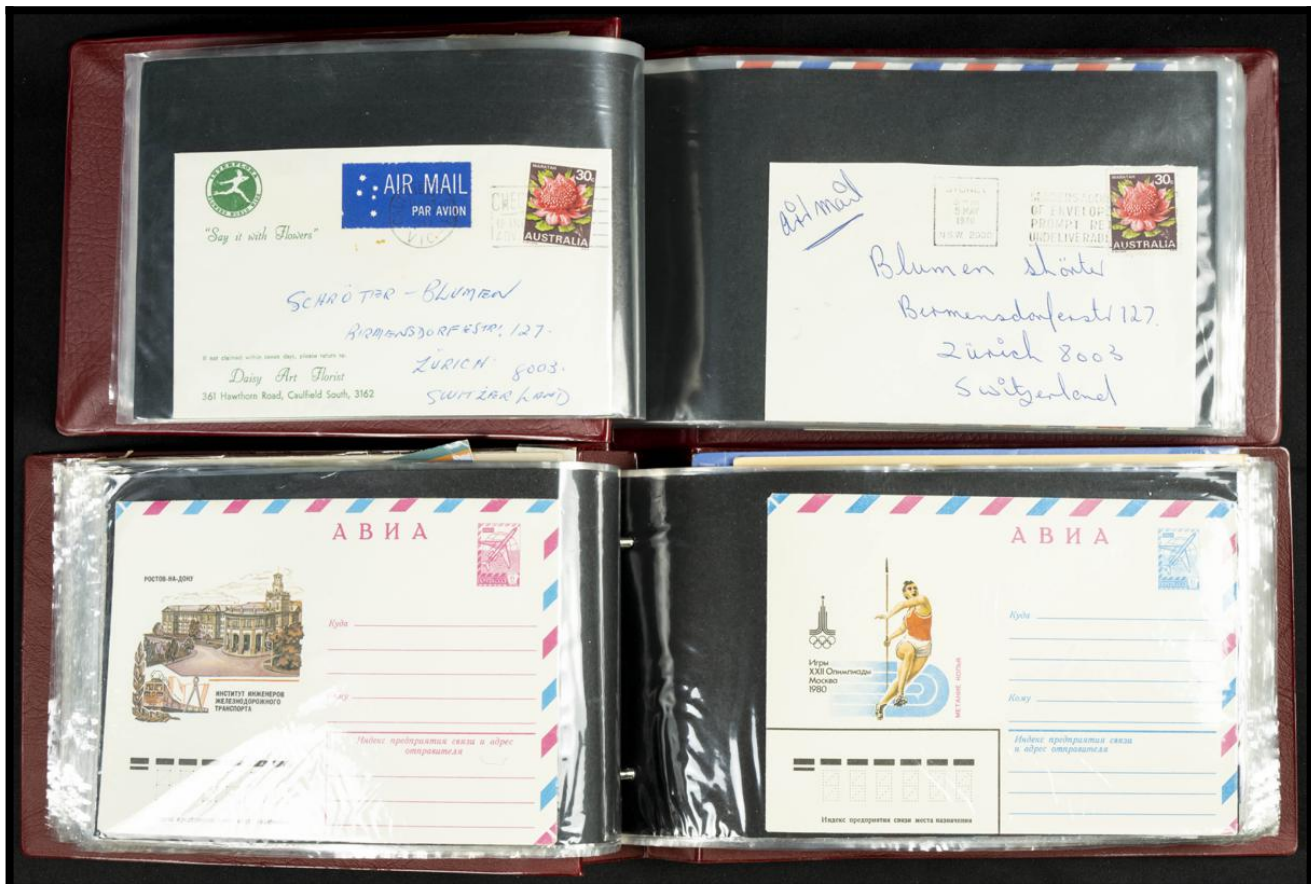 INTERFLORA
"Say it with Flowers"
AIR MAIL
PAR AVION
VIC
WARATAH
30c
AUSTRALIA
SCHRÖTER - BLUMEN
BIRMENSDORFESTR. 127.
ZÜRICH 8003.
SWITZERLAND
If not claimed within seven days, please return to
Daisy Art Florist
361 Hawthorn Road, Caulfield South, 3162
air mail
SYDNEY
5 MAY
N.S.W. 2000
OF ENVELOP
PROMPT RE
UNDELIVERABL
WARATAH
30c
AUSTRALIA
Blumen Shöter
Birmensdorferstr 127.
Zürich 8003
Switzerland
АВИА
РОСТОВ-НА-ДОНУ
ИНСТИТУТ ИНЖЕНЕРОВ
ЖЕЛЕЗНОДОРОЖНОГО
ТРАНСПОРТА
Куда
Кому
Индекс предприятия связи и адрес
отправителя
АВИА
Игры
XXII Олимпиады
Москва
1980
МЕТАНИЕ КОПЬЯ
Куда
Кому
Индекс предприятия связи
и адрес отправителя
Индекс предприятия связи места назначения